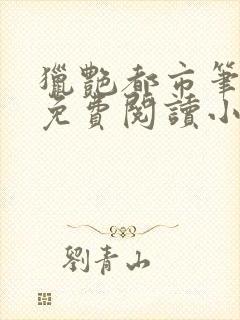 獵艷都市筆
免費閱讀小
劉青山